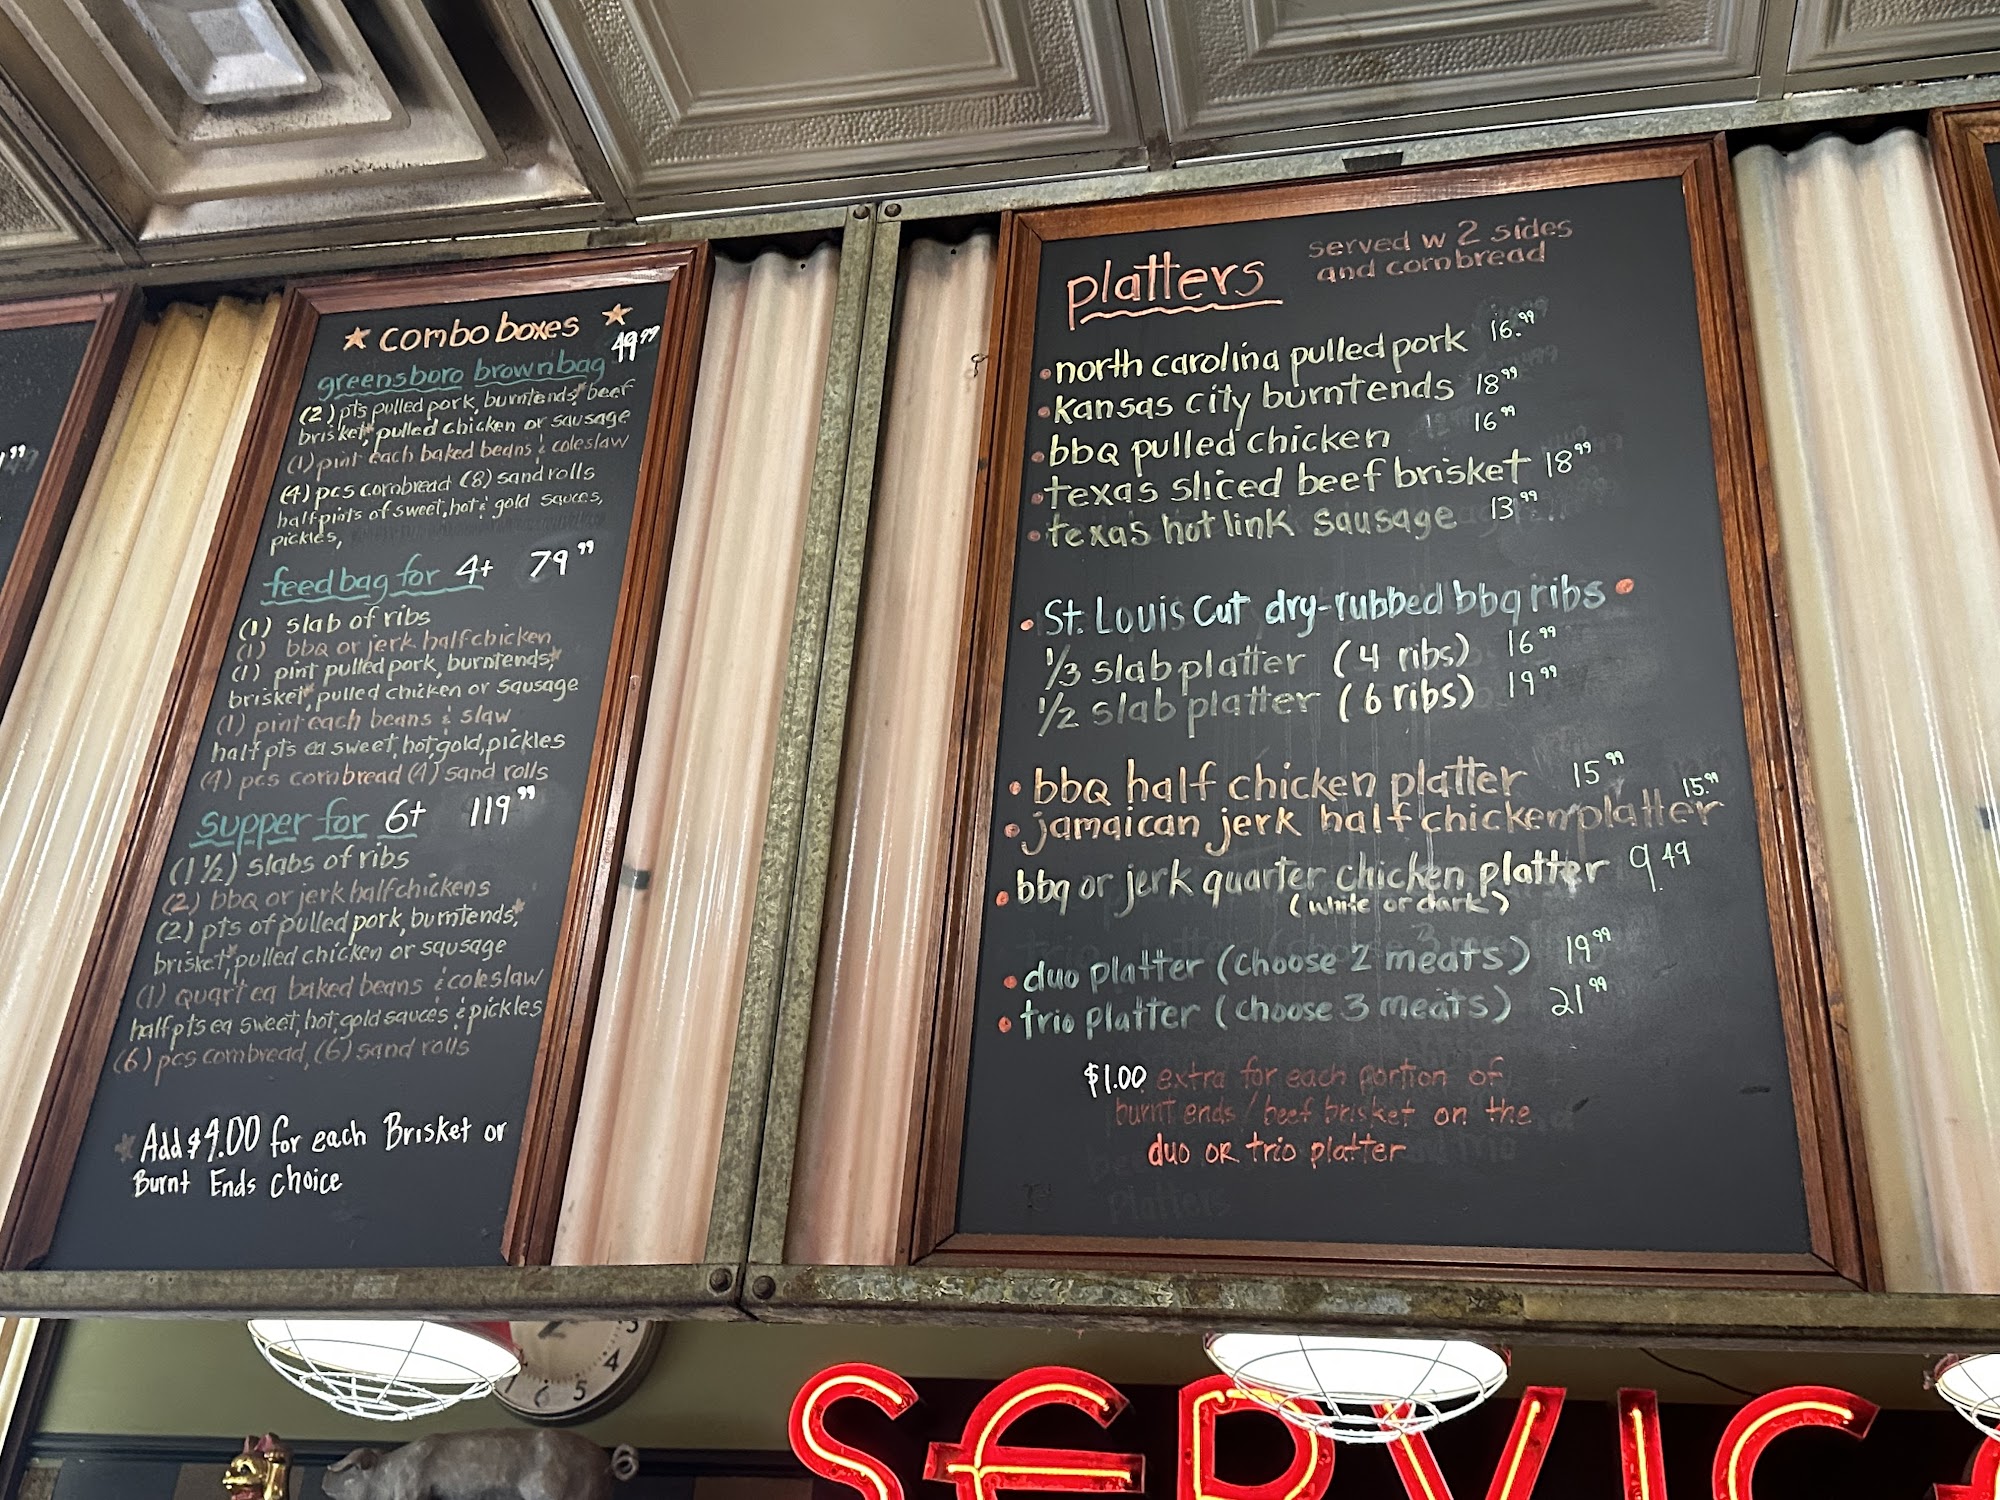 combo boxes
greensboro brown bag 49.99
(2) pts pulled pork, burnt ends,* beef
brisket,* pulled chicken or sausage
(1) pint each baked beans & coleslaw
(4) pcs cornbread (8) sand rolls
half pints of sweet, hot & gold sauces,
pickles,
feedbag for 4+ 79.99
(1) slab of ribs
(1) bbq or jerk half chicken
(1) pint pulled pork, burnt ends,*
brisket,* pulled chicken or sausage
(1) pint each beans & slaw
half pts ea sweet, hot, gold, pickles
(4) pcs cornbread (4) sand rolls
supper for 6+ 119.99
(1 1/2) slabs of ribs
(2) bbq or jerk half chickens
(2) pts of pulled pork, burnt ends,*
brisket,* pulled chicken or sausage
(1) quart ea baked beans & coleslaw
half pts ea sweet, hot, gold sauces & pickles
(6) pcs cornbread, (6) sand rolls
* Add $4.00 for each Brisket or
Burnt Ends Choice
platters
served w 2 sides
and cornbread
north carolina pulled pork 16.99
kansas city burnt ends 18.99
bbq pulled chicken 16.99
texas sliced beef brisket 18.99
texas hot link sausage 13.99
St. Louis Cut dry-rubbed bbq ribs
1/3 slab platter (4 ribs) 16.99
1/2 slab platter (6 ribs) 19.99
bbq half chicken platter 15.99
jamaican jerk half chicken platter 15.99
bbq or jerk quarter chicken platter 9.49
(white or dark)
duo platter (choose 2 meats) 19.99
trio platter (choose 3 meats) 21.99
$1.00 extra for each portion of
burnt ends/beef brisket on the
duo OR trio platter
SERVIC